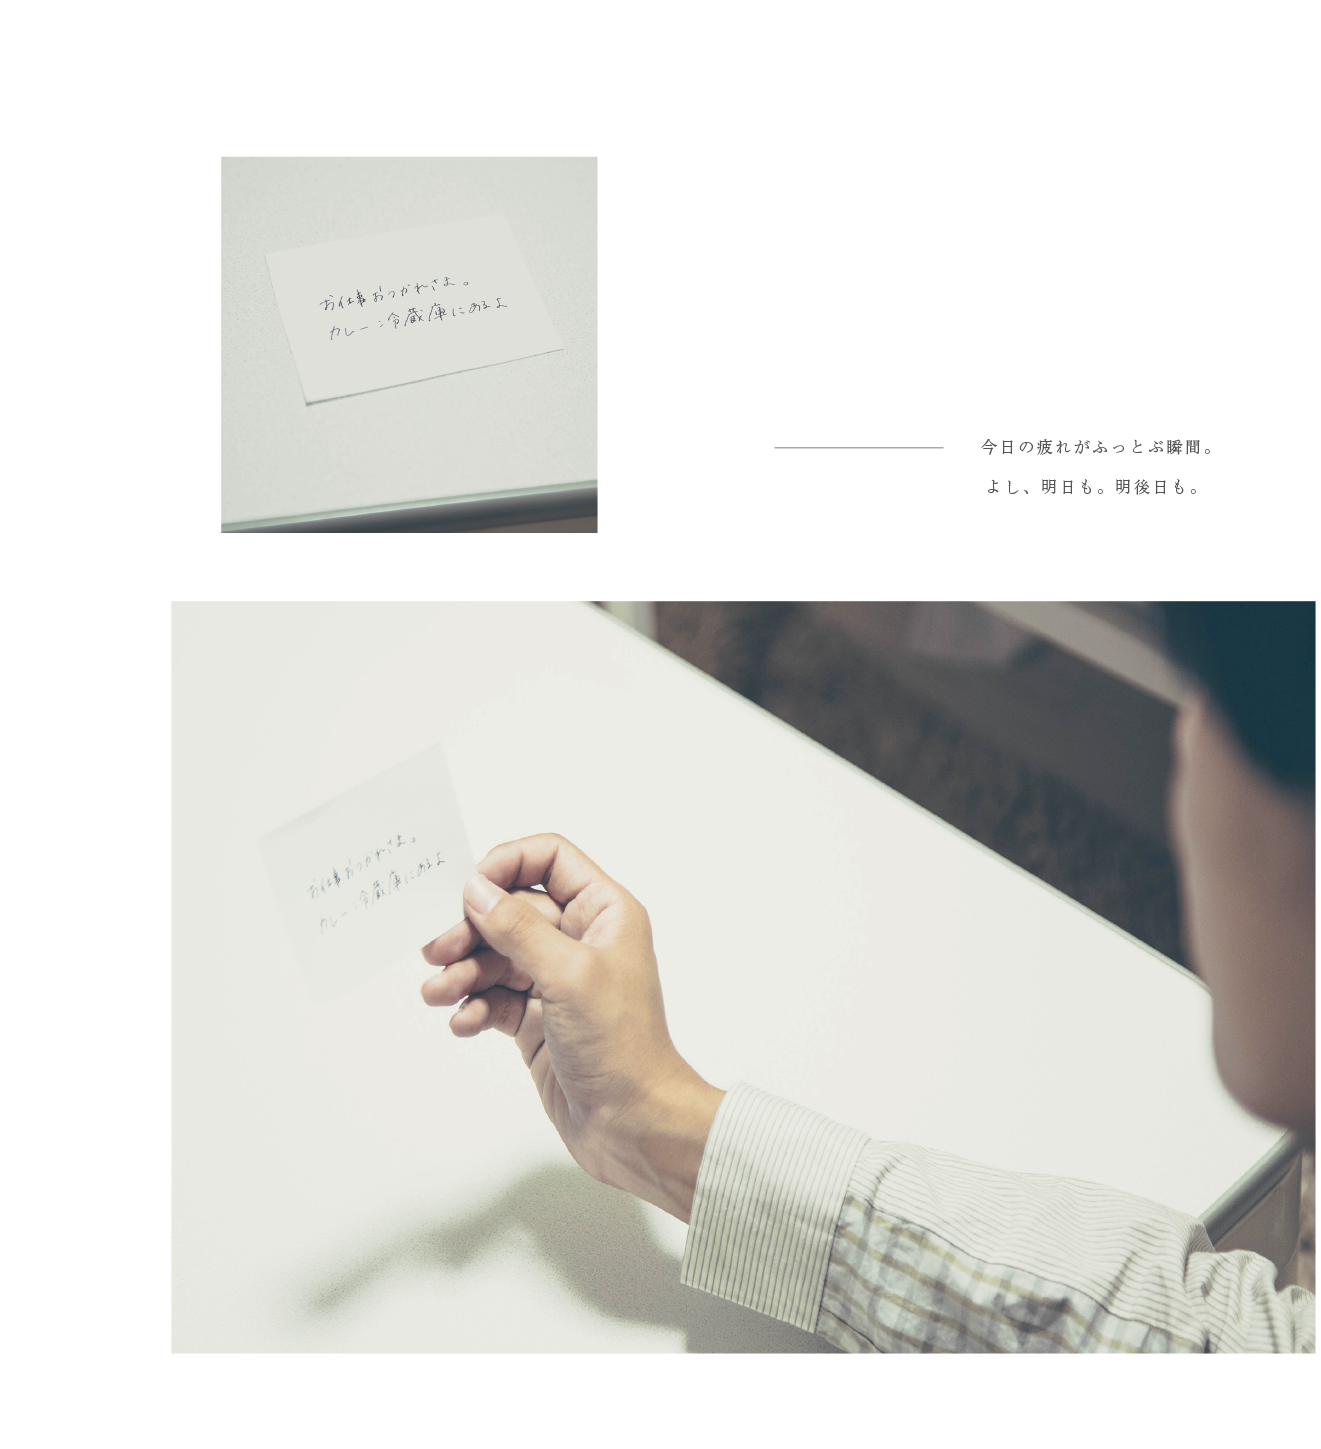 お仕事おつかれさま。
カレー:冷蔵庫にあるよ
今日の疲れがふっとぶ瞬間。
よし、明日も。明後日も。
お仕事おつかれさま。
カレー:冷蔵庫にあるよ